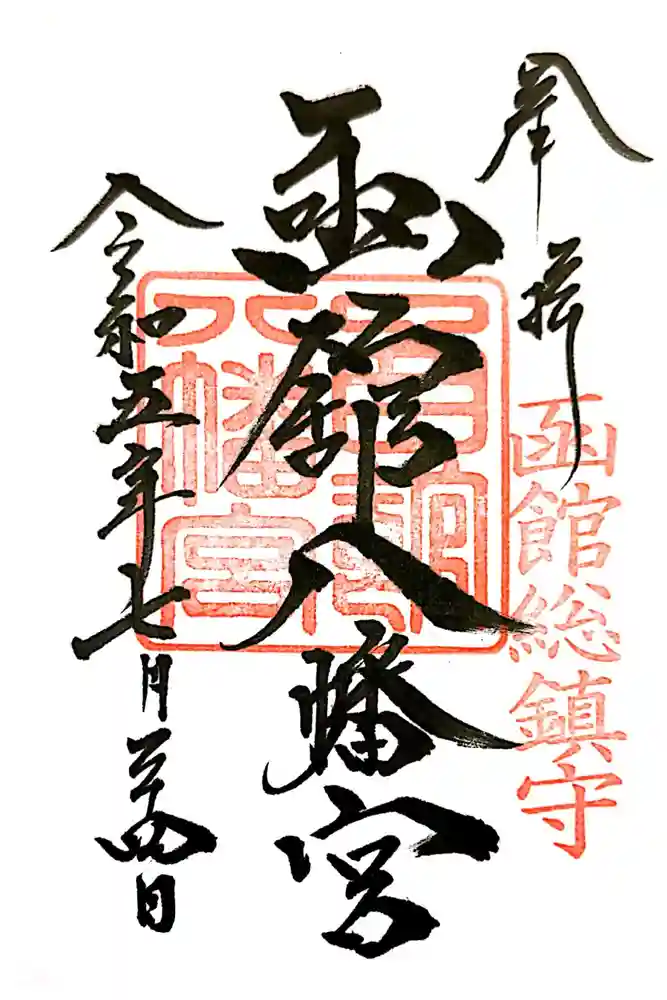 奉拝
函館総鎮守
函館八幡宮
八幡宮
令和五年七月二十四日